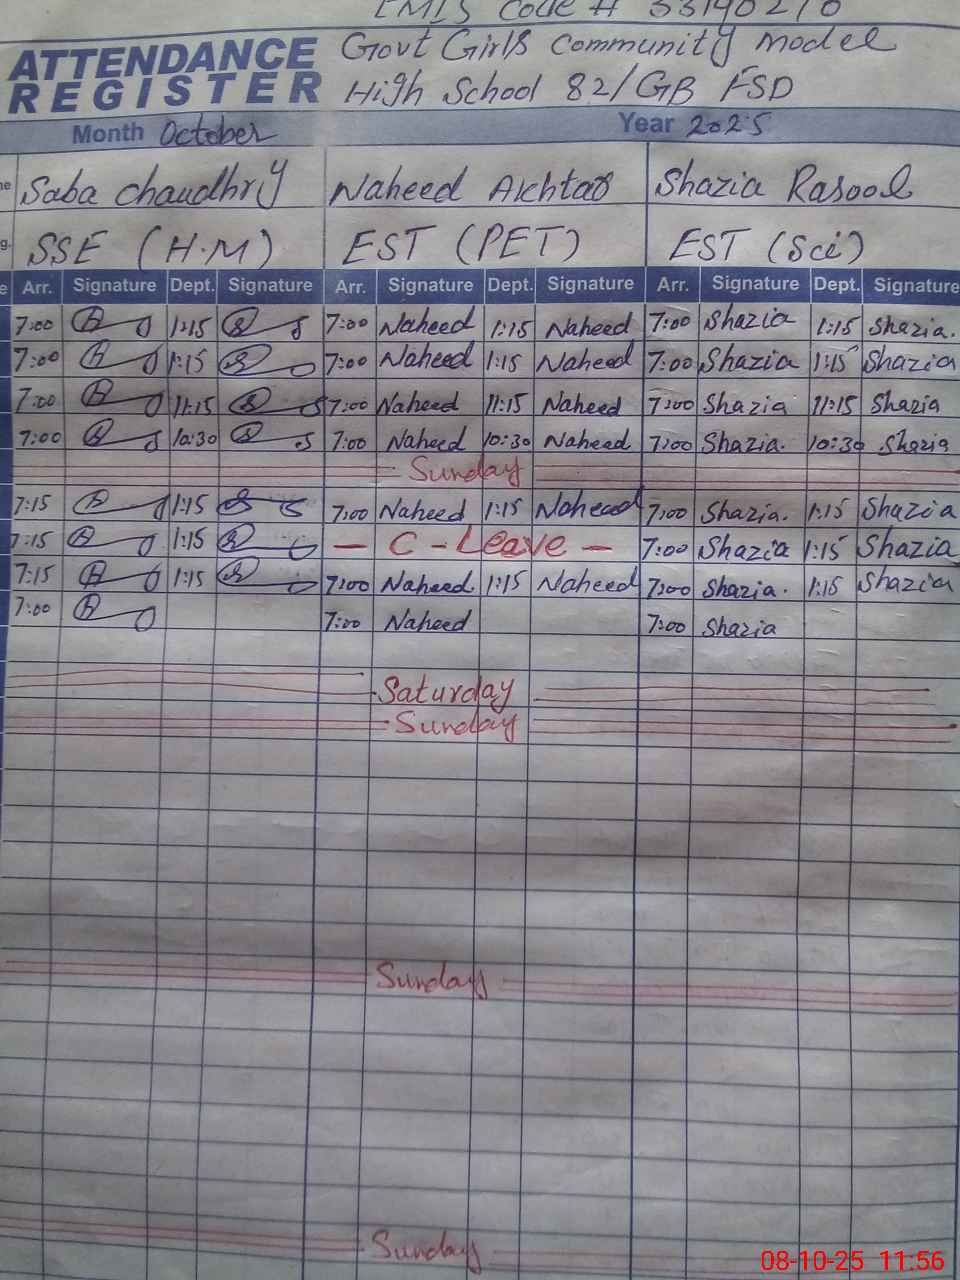 EMIS Code #
ATTENDANCE REGISTER
Govt Girls Community Model
High School 82/GB FSD
Month October Year 2025
Saba Chaudhry Naheed Akhtar Shazia Rasool
SSE (H.M) EST (PET) EST (Sci)
Arr. Signature Dept. Signature Arr. Signature Dept. Signature Arr. Signature Dept. Signature
7:00 1:15 7:00 Naheed 1:15 Naheed 7:00 Shazia 1:15 Shazia.
7:00 1:15 7:00 Naheed 1:15 Naheed 7:00 Shazia 1:15 Shazia
7:00 11:15 7:00 Naheed 11:15 Naheed 7:00 Shazia 11:15 Shazia
7:00 10:30 7:00 Naheed 10:30 Naheed 7:00 Shazia. 10:30 Shazia
Sunday
7:15 1:15 7:00 Naheed 1:15 Naheed 7:00 Shazia. 1:15 Shazia
7:15 1:15 - C - Leave - 7:00 Shazia 1:15 Shazia
7:15 1:15 7:00 Naheed 1:15 Naheed 7:00 Shazia. 1:15 Shazia
7:00 7:00 Naheed 7:00 Shazia
Saturday
Sunday
Sunday
Sunday
08-10-25 11:56